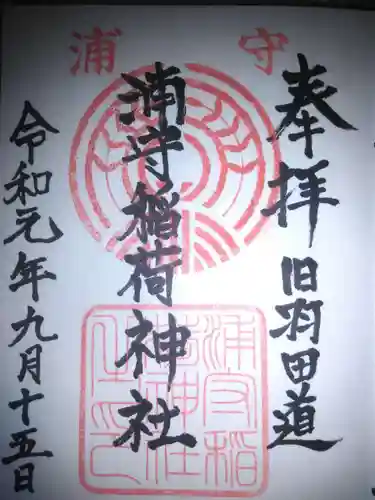 浦 守
奉拝 旧羽田道
浦守稲荷神社
令和元年九月十五日
浦守稲
荷神社